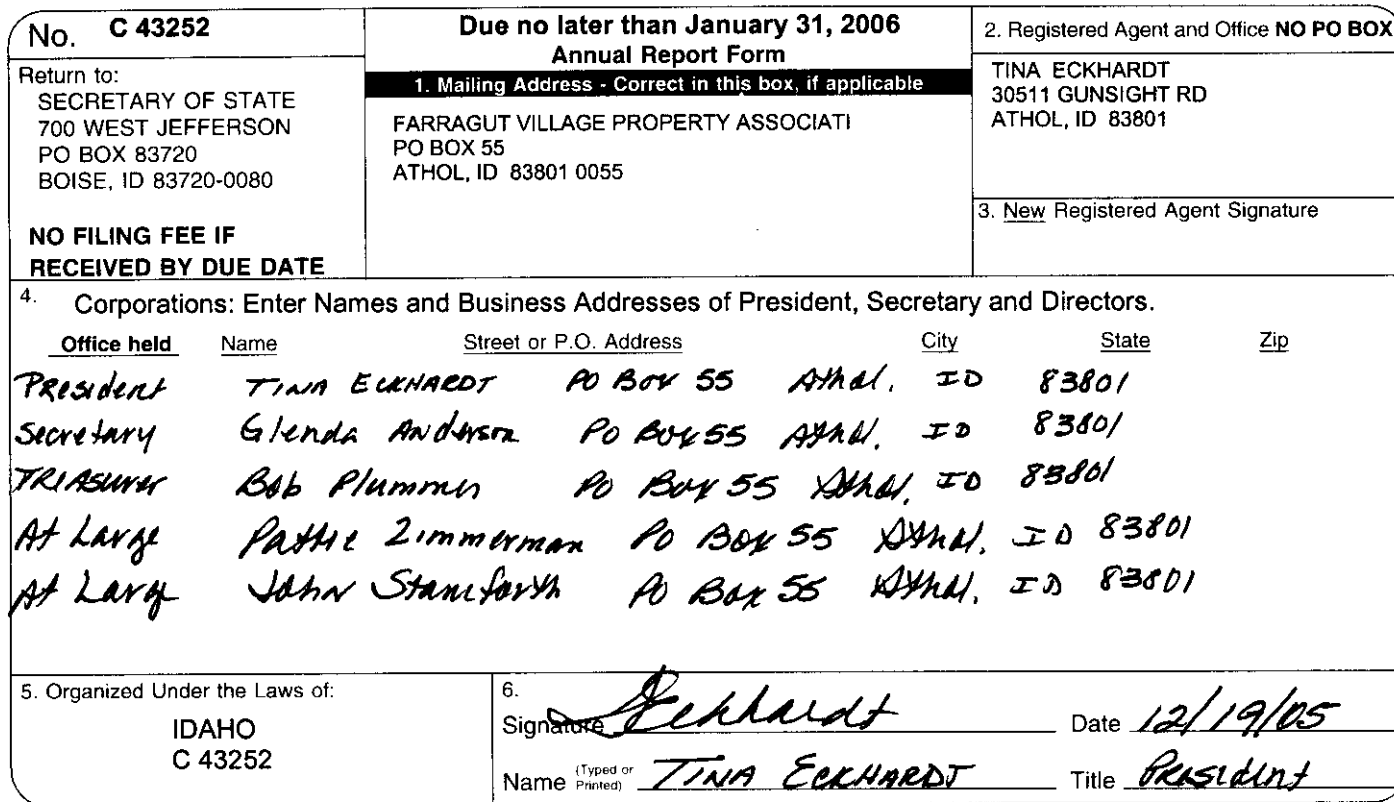 No. C 43252
Return to:
SECRETARY OF STATE
700 WEST JEFFERSON
PO BOX 83720
BOISE, ID 83720-0080
NO FILING FEE IF
RECEIVED BY DUE DATE
Due no later than January 31, 2006
Annual Report Form
1. Mailing Address - Correct in this box, if applicable
FARRAGUT VILLAGE PROPERTY ASSOCIATI
PO BOX 55
ATHOL, ID 83801 0055
2. Registered Agent and Office NO PO BOX
TINA ECKHARDT
30511 GUNSIGHT RD
ATHOL, ID 83801
3. New Registered Agent Signature
4. Corporations: Enter Names and Business Addresses of President, Secretary and Directors.
Office held Name Street or P.O. Address City State Zip
President TINA ECKHARDT PO Box 55 Athol. ID 83801
Secretary Glenda Anderson PO Box 55 Athol. ID 83801
TREASURER Bob Plummer PO Box 55 Athol. ID 83801
At Large Pattie Zimmerman PO Box 55 Athol. ID 83801
At Large John Staniforth PO Box 55 Athol. ID 83801
5. Organized Under the Laws of:
IDAHO
C 43252
6.
Signature TEckhardt Date 12/19/05
Name (Typed or Printed) TINA ECKHARDT Title President